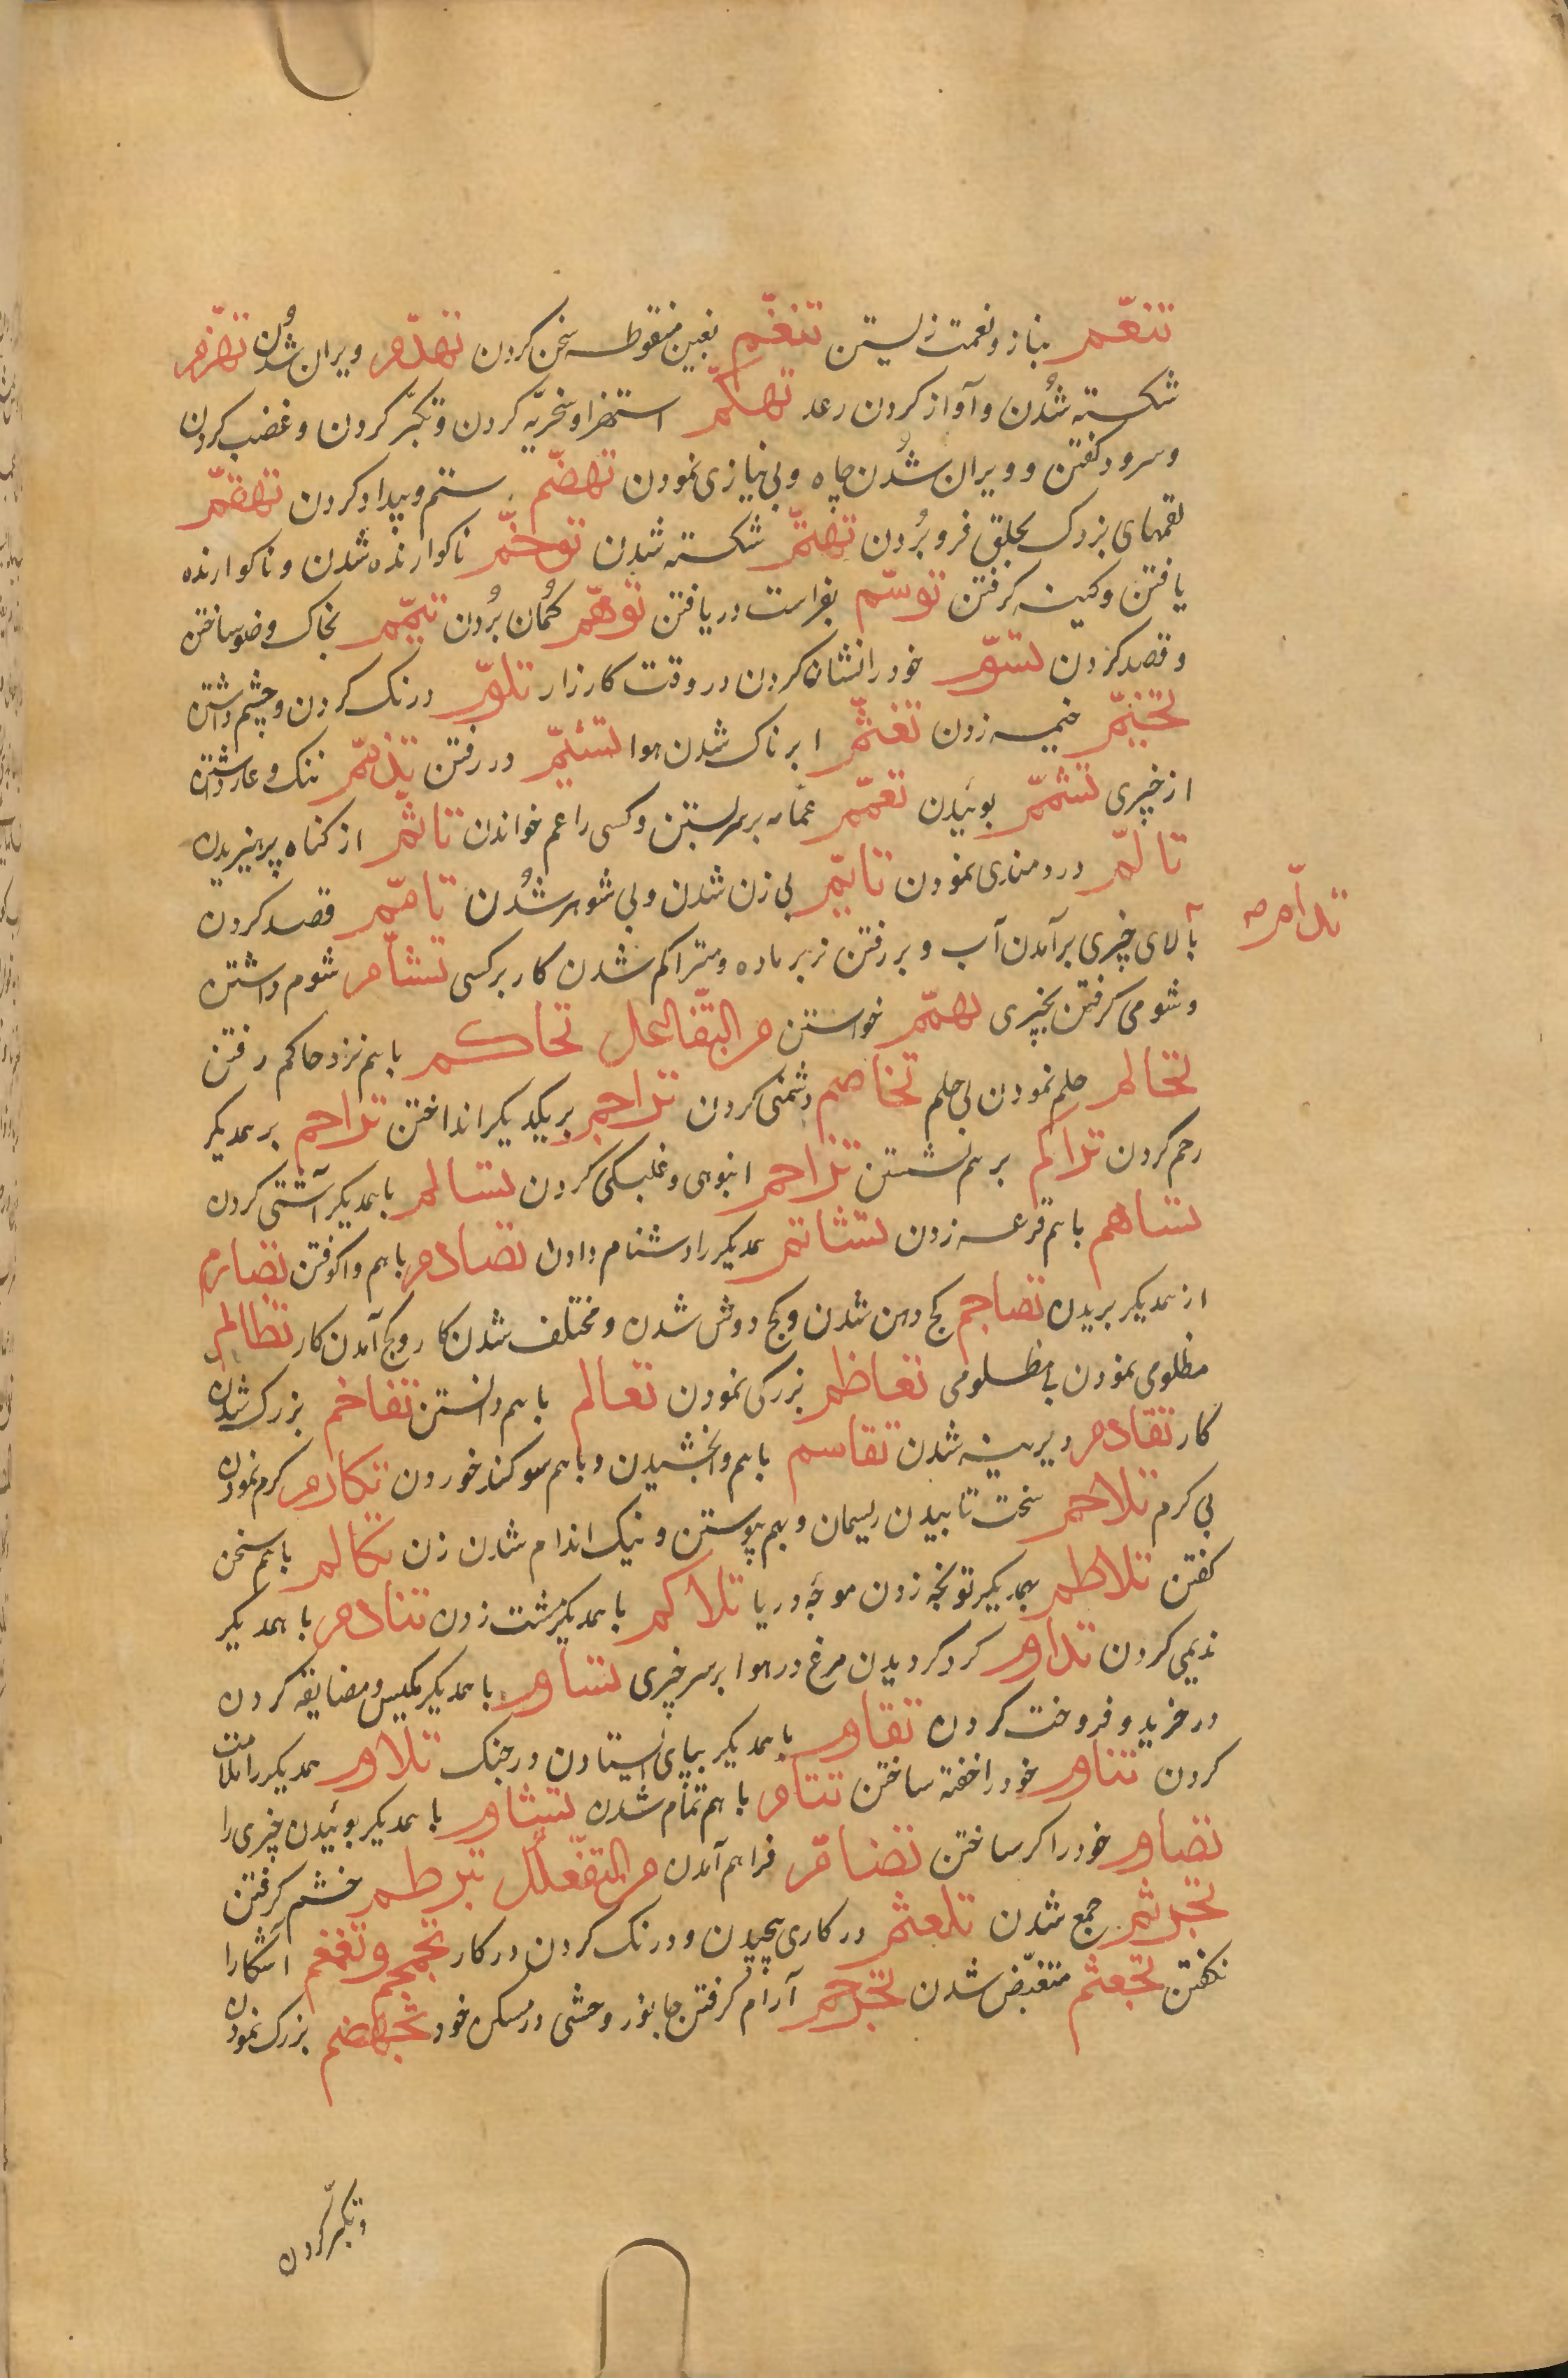 تنغّم بناز و نعمت زیستن تنغّم بغین منقوطه سخن کردن تهدّم ویران شُدن تهزّم
شکسته شُدن و آواز کردن رعد تهکّم استهزا و سخریّه کردن و تکبّر کردن و غضب کردن
و سرود کفتن و ویران شُدن چاه و بی نیازی نمودن تهضّم ستم و بیداد کردن تهقّم
لقمهای بزرک بحلق فرو بُردن تهتّم شکسته شدن توخّم ناکوارنده شدن و ناکوارنده
یافتن و کینه کرفتن توسّم بفراست دریافتن توهّم کُمان بُردن تیمّم بخاک وضو ساختن
و قصد کردن تسوّم خود را نشان کردن در وقت کارزار تلوّم درنک کردن و چشم داشتن
تخیّم خیمه زدن تغیّم ابرناک شدن هوا تشیّم در رفتن تذمّم ننک و عار داشتن
از چیزی تشمّم بوئیدن تعمّم عمامه بر سر بستن و کسی را عم خواندن تاثّم از کناه پرهیزیدن
تالّم دردمندی نمودن تایّم بی زن شدن و بی شوهر شُدن تامّم قصد کردن
تدأّم
بالای چیزی برآمدن آب و بر رفتن نر بر ماده و متراکم شدن کار بر کسی تشأّم شوم داشتن
و شومی کرفتن بچیزی تهمّم خواستن من التّفاعل تحاکم باهم نزد حاکم رفتن
تحالم حلم نمودن بی حلم تخاصم دشمنی کردن تراجم بر یکدیکر انداختن تراحم بر همدیکر
رحم کردن تراکم بر هم نشستن تزاحم انبوهی و غلبکی کردن تسالم با همدیکر آشتی کردن
تساهم باهم قرعه زدن تشاتم همدیکر را دشنام دادن تصادم باهم واکوفتن تصارم
از همدیکر بریدن تضاجم کج دهن شدن و کج دوش شدن و مختلف شدن کار و کج آمدن کار تظالم
مظلومی نمودن بی مظلومی تعاظم بزرکی نمودن تعالم باهم دانستن تفاخم بزرک شدن
کار تقادم دیرینه شدن تقاسم باهم وابخشیدن و باهم سوکند خوردن تکارم کرم نمودن
بی کرم تلاحم سخت تابیدن ریسمان و بهم پیوستن و نیک اندام شدن زن تکالم باهم سخن
کفتن تلاطم بهمدیکر توبخه زدن موجهٔ دریا تلاکم با همدیکر مشت زدن تنادم با همدیکر
ندیمی کردن تداوم کرد کردیدن مرغ در هوا بر سر چیزی تساوم با همدیکر مکیس و مضایقه کردن
در خرید و فروخت کردن تقاوم با همدیکر بپای ایستادن در جنک تلاوم همدیکر را ملامت
کردن تناوم خود را خفته ساختن تتامّ باهم تمام شدن تشامّ با همدیکر بوئیدن چیزی را
تصامّ خود را کر ساختن تضامّ فراهم آمدن من التّفعلُل تبرطم خشم کرفتن
تجرثم جمع شدن تلعثم در کاری پیچیدن و درنک کردن در کار تجمجم و تغمغم آشکارا
نکفتن تجعثم متقبّض شدن تجرجم آرام کرفتن جانور وحشی در مسکن خود تجهضم بزرک نمودن
و تکبّر کردن